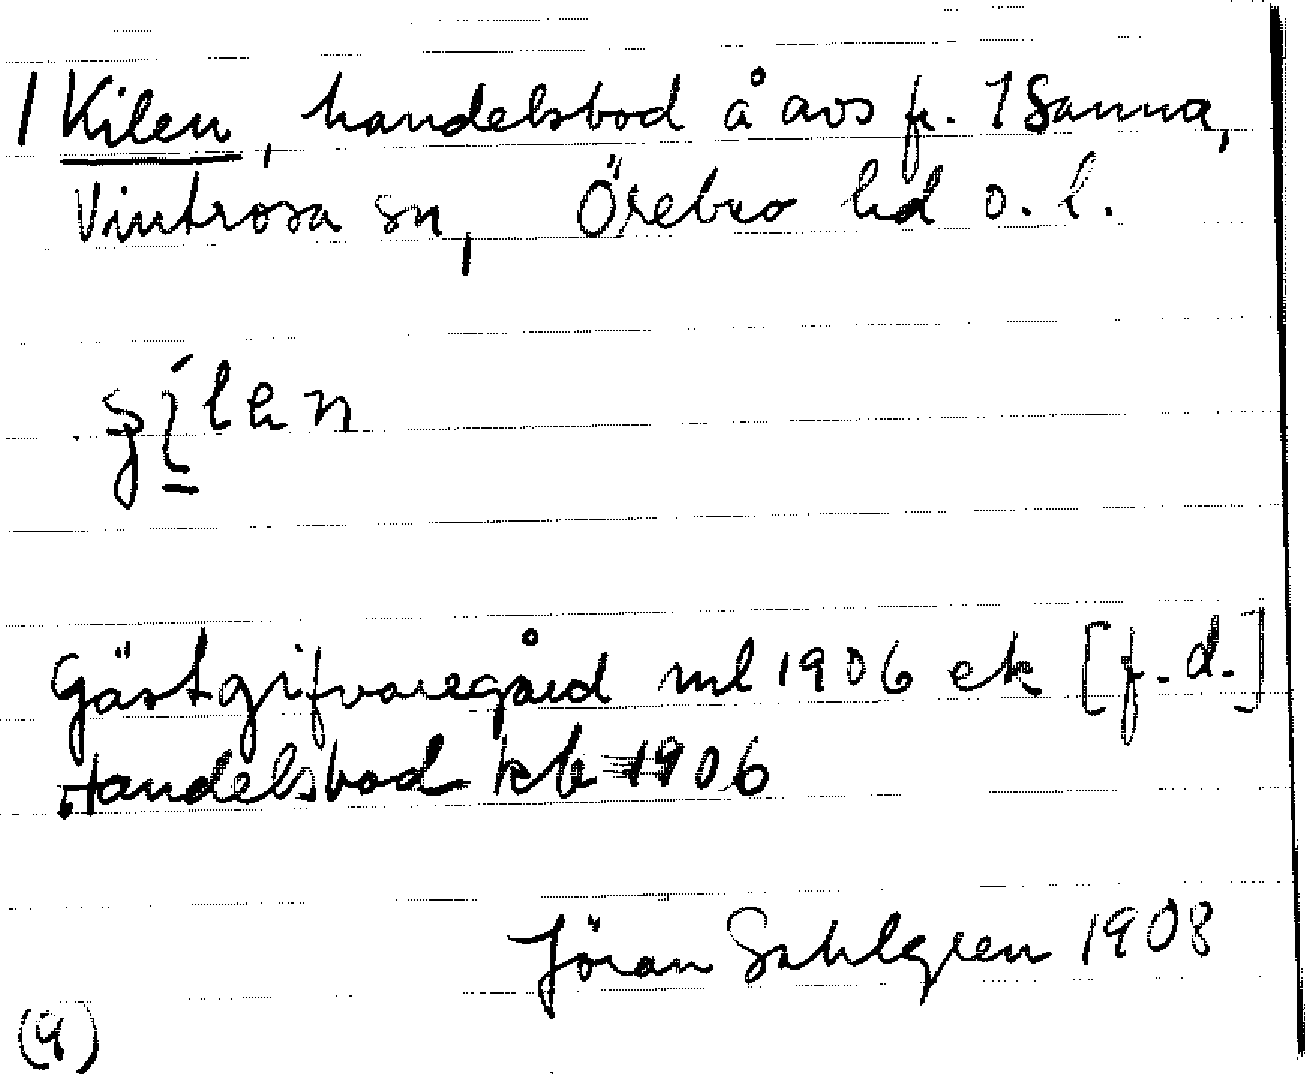 1 Kilen, handelsbod å avs fr. 1 Sanna,
Vintrosa sn, Örebro hd o. l.
Gästgifvaregård ml 1906 ek [f. d.]
Handelsbod kb 1906
Jöran Sahlgren 1908